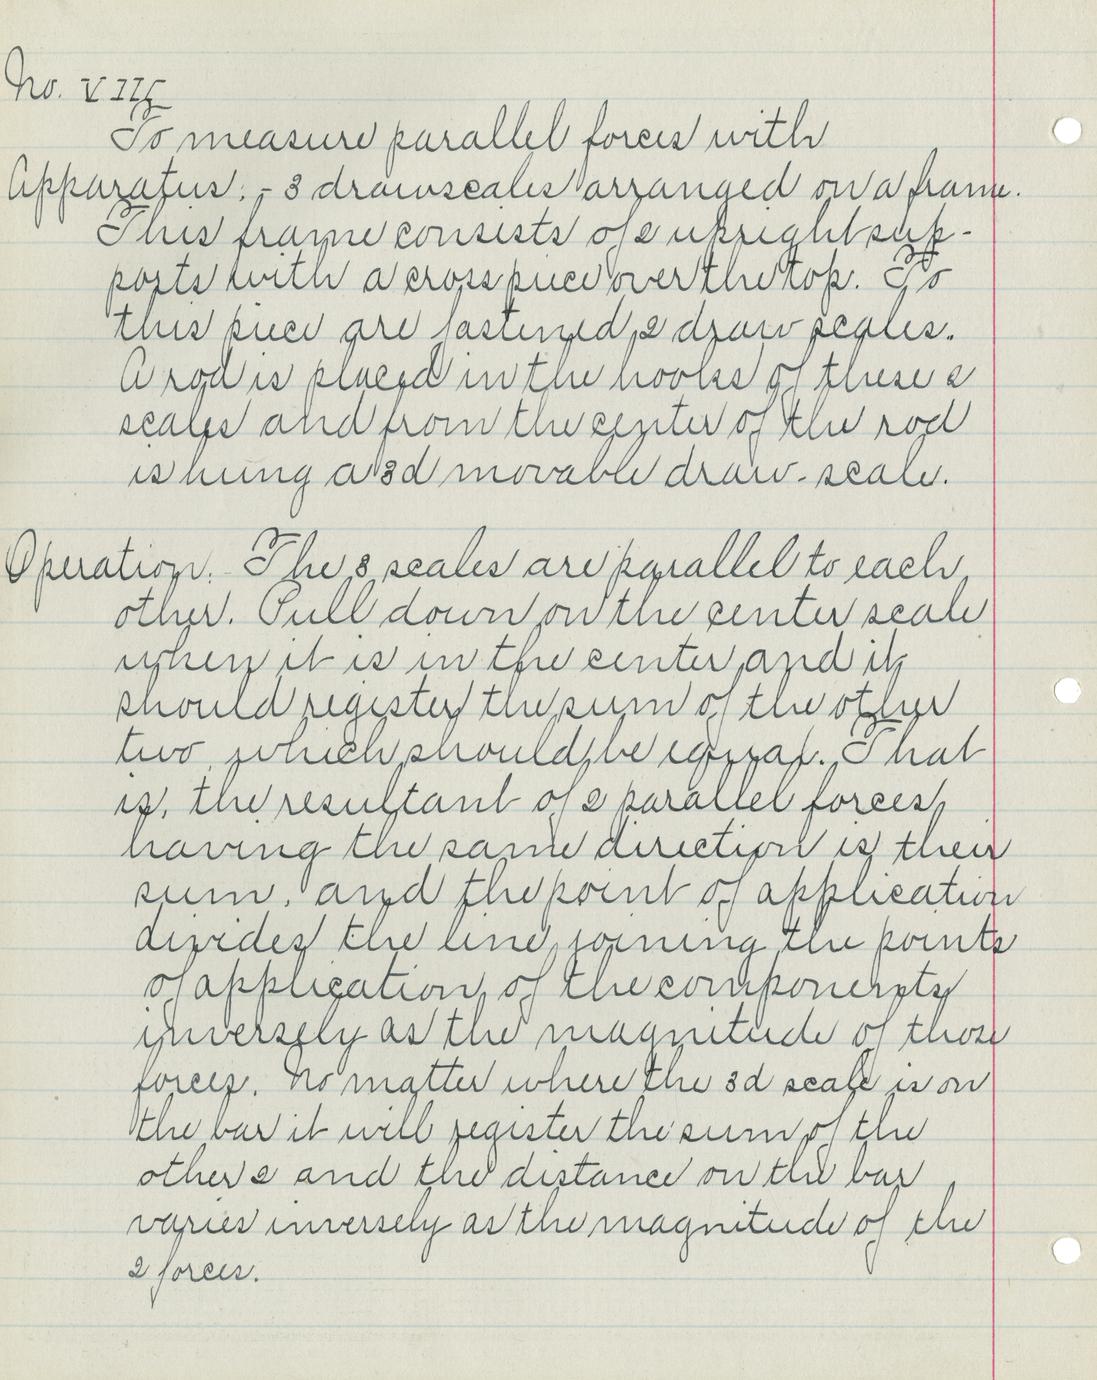 No. VIII
To measure parallel forces with
Apparatus:- 3 drawscales arranged on a frame.
This frame consists of 2 upright sup-
ports with a cross piece over the top. To
this piece are fastened 2 draw scales.
A rod is placed in the hooks of these 2
scales and from the center of the rod
is hung a 3d movable draw-scale.
Operation. The 3 scales are parallel to each
other. Pull down on the center scale
when it is in the center and it
should register the sum of the other
two, which should be equal. That
is, the resultant of 2 parallel forces
having the same direction is their
sum, and the point of application
divides the line joining the points
of application of the components
inversely as the magnitude of those
forces. No matter where the 3d scale is on
the bar it will register the sum of the
other 2 and the distance on the bar
varies inversely as the magnitude of the
2 forces.